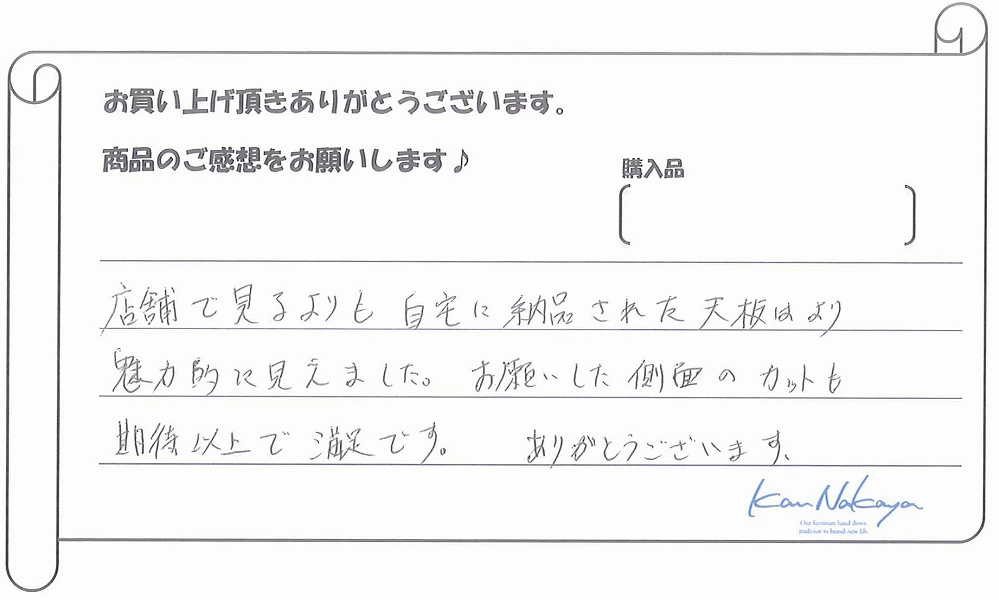 お買い上げ頂きありがとうございます。
商品のご感想をお願いします♪
購入品
店舗で見るよりも 自宅に納品された天板はより
魅力的に見えました。 お願いした側面のカットも
期待以上で満足です。 ありがとうございます、
Kan Nakaya
Our furniture hand down
tradition to brand-new life.